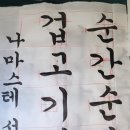 순간순
겁고기
나마스테